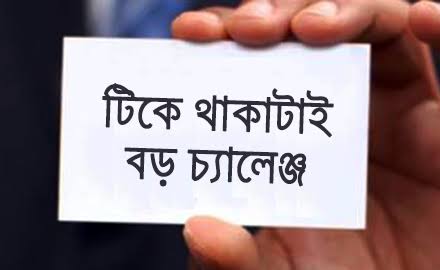 টিকে থাকাটাই
বড় চ্যালেঞ্জ